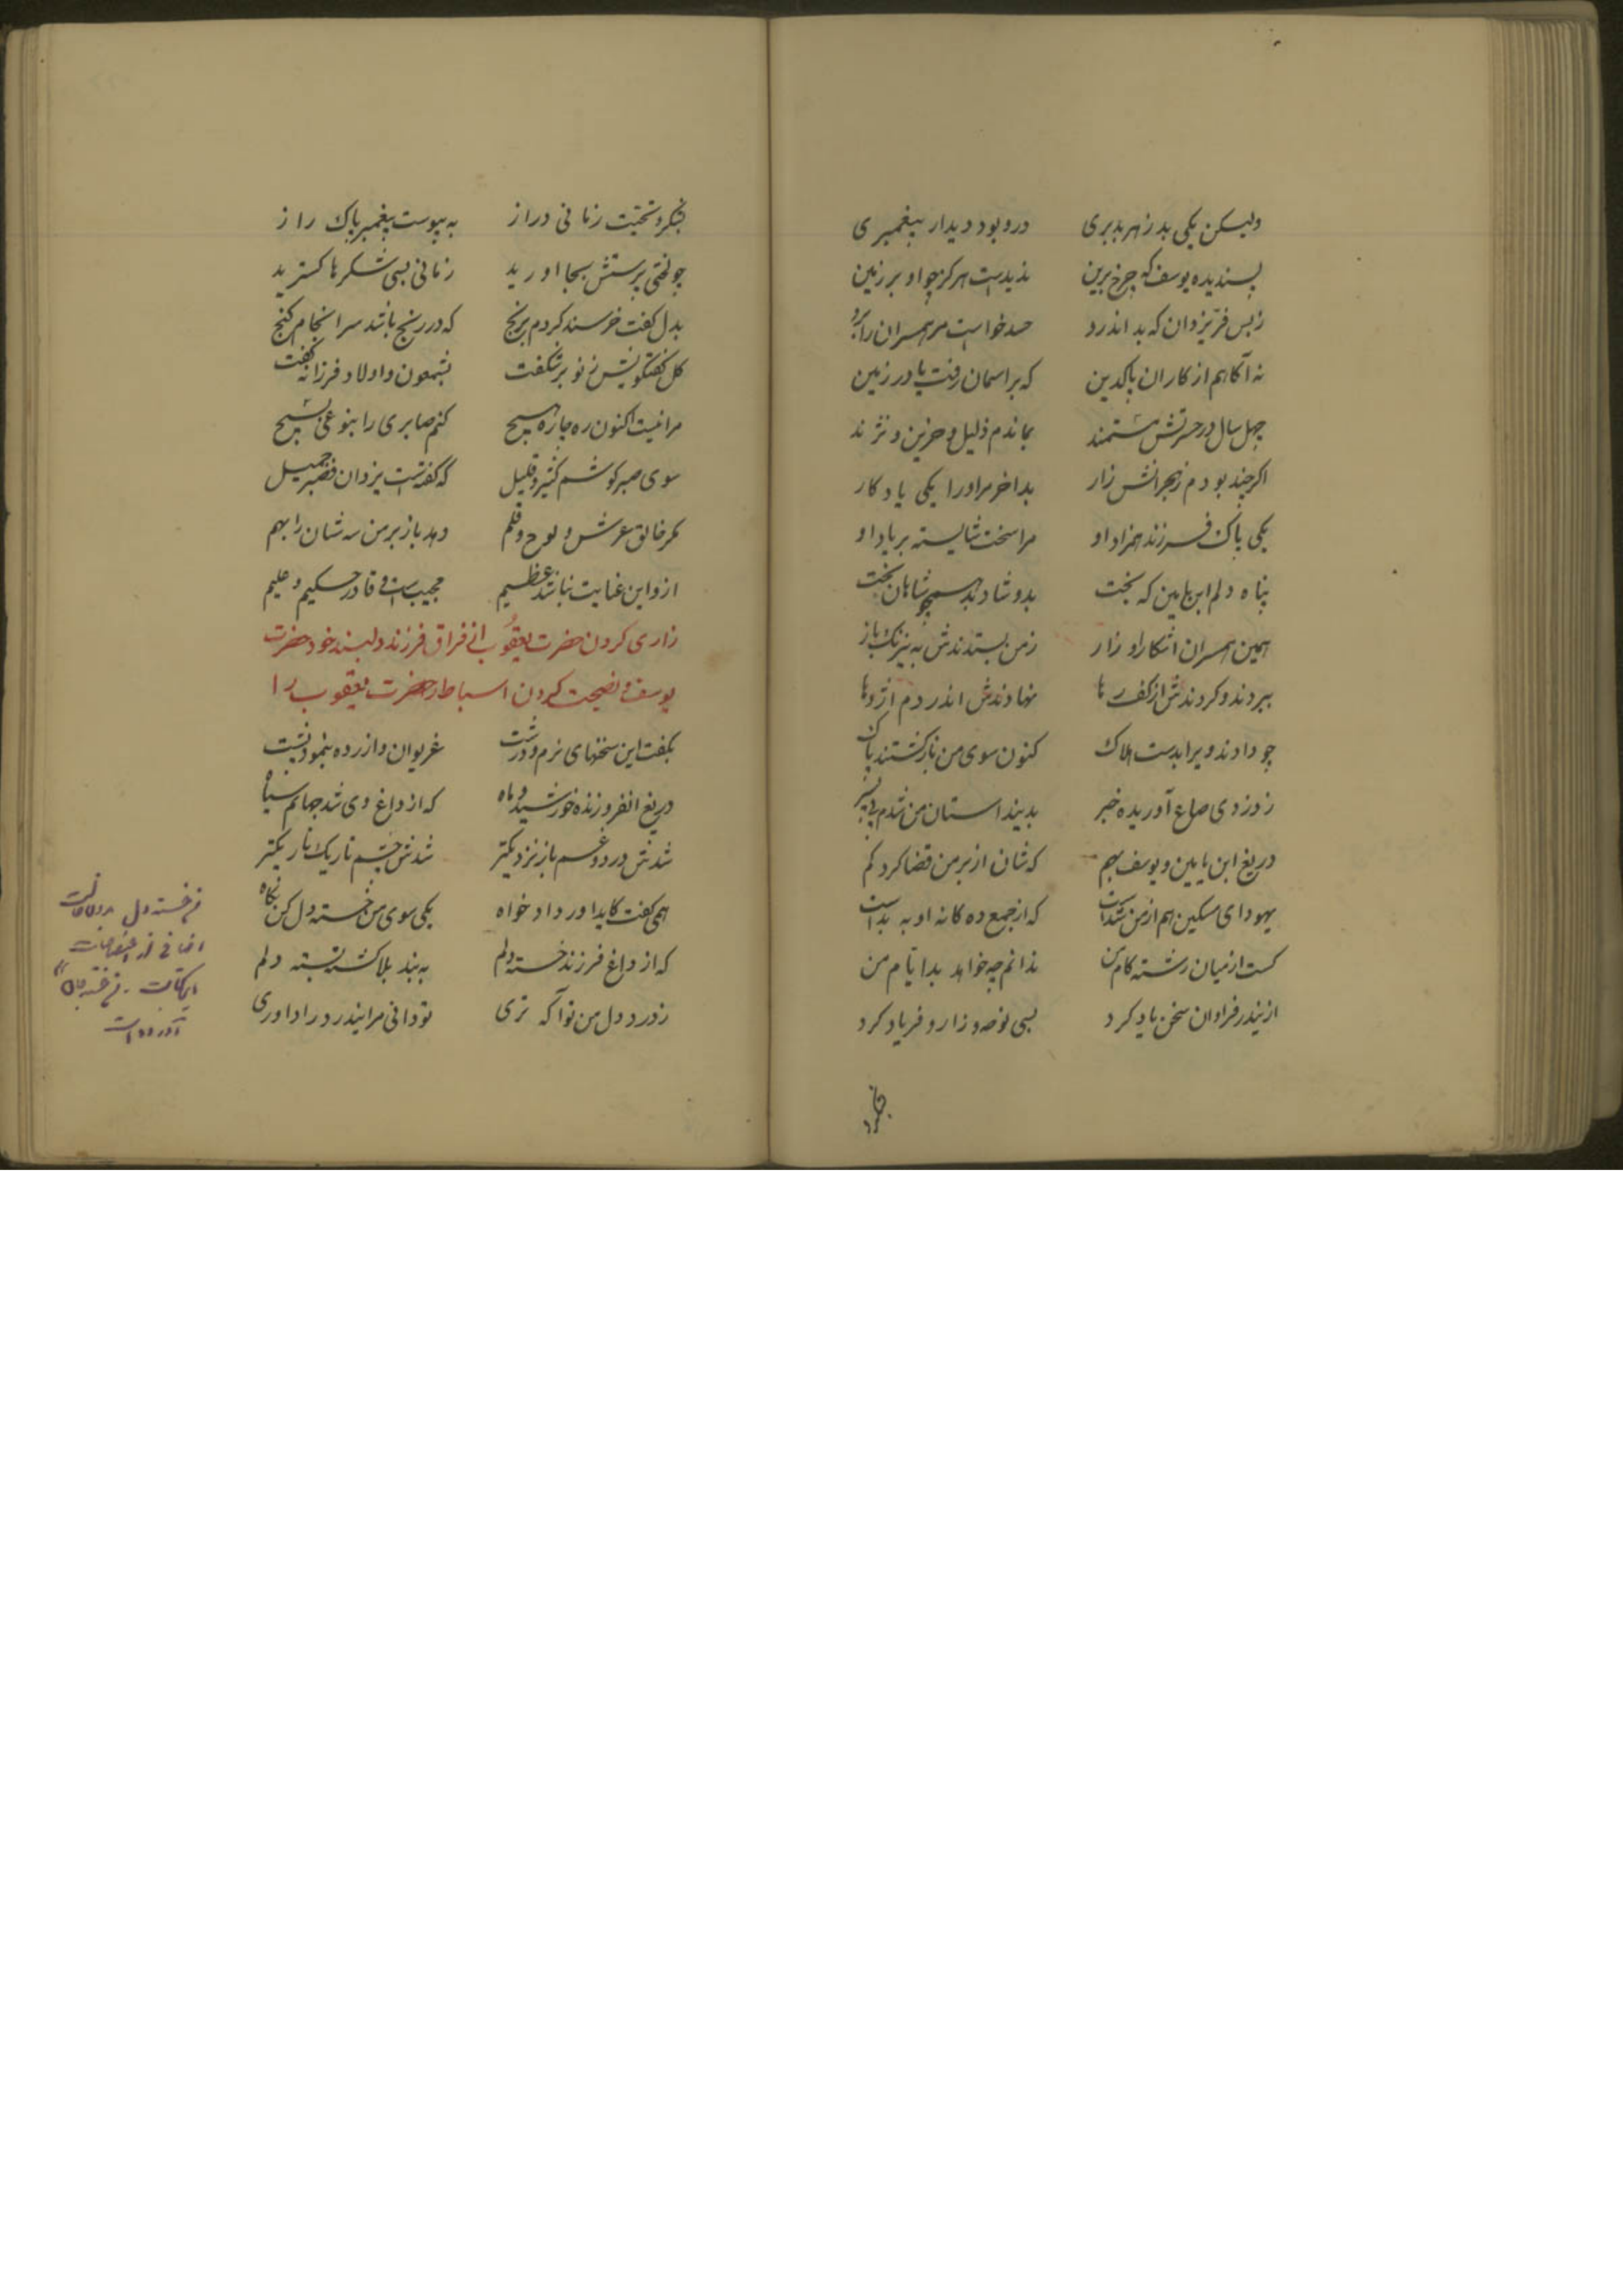 ولیکن یکی بد زهر بد بری درو بود دیدار پیغمبری
پسندیده یوسف که چرخ برین ندیدست هرگز چو او بر زمین
ز بس فر یزدان که بد اندرد حسد خواست مر همسران را برو
نه آگاهم از کار ان پاکدین که بر اسمان رفت یا در زمین
چهل سال در حسرتش مستمند بماندم ذلیل و حزین و نژند
اگر چند بودم ز هجرانش زار بد اخر مرا و را یکی یادکار
یکی پاک فرزند همزاد او مرا سخت شایسته بر یاد او
پناه دلم ابن یامین که بخت بدو شاد بد همچو شاهان بتخت
همین همسران اشکارا و زار ز من بستدندش به نیرنک باز
ببردند و کردندش از کف رها نهادندش اندر دم اژدها
چو دادند ویرا بدست هلاک کنون سوی من بازکشتند پاک
ز دزدی صاع آوریده خبر بدین داستان من شدم بی پسر
دریغ ابن یامین و یوسف بهم که شان از بر من قضا کرد کم
یهودای مسکین هم از من شداست که از جمع ده کانه او به بداست
کست از میان رشته کام من ندانم چه خواهد بد ایام من
ازیندر فراوان سخن یاد کرد بسی نوحه و زار و فریاد کرد
بفکرو
بفکرو تحیت زمانی دراز به پیوست پیغمبر پاک راز
چو لختی پرستش بجا اورید زمانی بسی شکرها کسترید
بدل کفت خرسند کردم برنج که در رنج باشد سرانجام کنج
کل کفتکویش ز نو بر شکفت بشمعون و اولاد فرزانه کفت
مرا نیست اکنون ره چاره هیچ کنم صابری را بنوعی بسیج
سوی صبر کوشم کثیر و قلیل که کفتست یزدان فصبر جمیل
مکر خالق عرش و لوح و قلم دهد باز بر من سه شان را بهم
ازو این عنایت نباشد عظیم مجیب است و قادر حکیم و علیم
زاری کردن حضرت یعقوب از فراق فرزند دلبند خود حضرت
یوسف و نصیحت کردن اسباط از حضرت یعقوب را
بکفت این سخنهای نرم و درشت غریوان و ازرده بنمود پشت
دریغ انفروزنده خورشید و ماه که از داغ وی شد جهانم سیاه
شدش درد و غم باز نزدیکتر شدش چشم تاریک تاریکتر
همی کفت کایداور دادخواه یکی سوی من خسته دل کن نکاه
که از داغ فرزند خسته دلم به بند بلا کشته بسته دلم
ز درد دل من تو آکه تری تو دانی مرا نیدر در اداوری